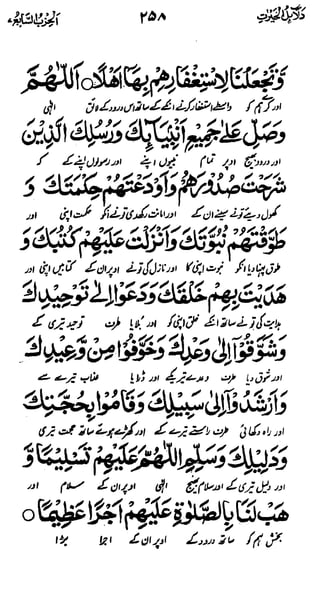 دلائل الخیرات ۲۵۸ الحزب السابع
وَتَجْعَلَنَا لِاسْتِغْفَارِهِمْ بِهَا اَهْلًا ○ اَللّٰهُمَّ
اور کرے ہم کو واسطے استغفار کرنے انکے کے ساتھ اس درود کے لائق الٰہی
وَصَلِّ عَلٰى جَمِيْعِ اَنْبِيَآئِكَ وَرُسُلِكَ الَّذِيْنَ
اور درود بھیج اوپر تمام نبیوں اپنے اور رسولوں اپنے کے کہ
شَرَحْتَ صُدُوْرَهُمْ وَاَوْدَعْتَهُمْ حِكْمَتَكَ وَ
کھول دیئے تونے سینے ان کے اور امانت رکھدی تونے انکو حکمت اپنی اور
طَوَّقْتَهُمْ نُبُوَّتَكَ وَاَنْزَلْتَ عَلَيْهِمْ كُتُبَكَ وَ
طوق پہنا دیا انکو نبوت اپنی کا اور نازل کی تونے اوپر ان کے کتابیں اپنی اور
هَدَيْتَ بِهِمْ خَلْقَكَ وَدَعَوْا اِلٰى تَوْحِيْدِكَ
ہدایت کی تونے ساتھ انکے خلق اپنی کو اور بلایا طرف توحید تیری کے
وَشَوَّقُوْا اِلٰى وَعْدِكَ وَخَوَّفُوْا مِنْ وَّعِيْدِكَ
اور شوق دیا طرف وعدے تیرے کے اور ڈرایا عذاب تیرے سے
وَاَرْشَدُوْا اِلٰى سَبِيْلِكَ وَقَامُوْا بِحُجَّتِكَ
اور راہ دکھائی طرف راستے تیرے کے اور کھڑے ہوئے ساتھ حجت تیری
وَدَلِيْلِكَ وَسَلِّمِ اللّٰهُمَّ عَلَيْهِمْ تَسْلِيْمًا وَّ
اور دلیل تیری کے اور سلام بھیج الٰہی اوپر ان کے سلام اور
هَبْ لَنَا بِالصَّلٰوةِ عَلَيْهِمْ اَجْرًا عَظِيْمًا ○
بخش ہم کو ساتھ درود کے اوپر ان کے اجر بڑا